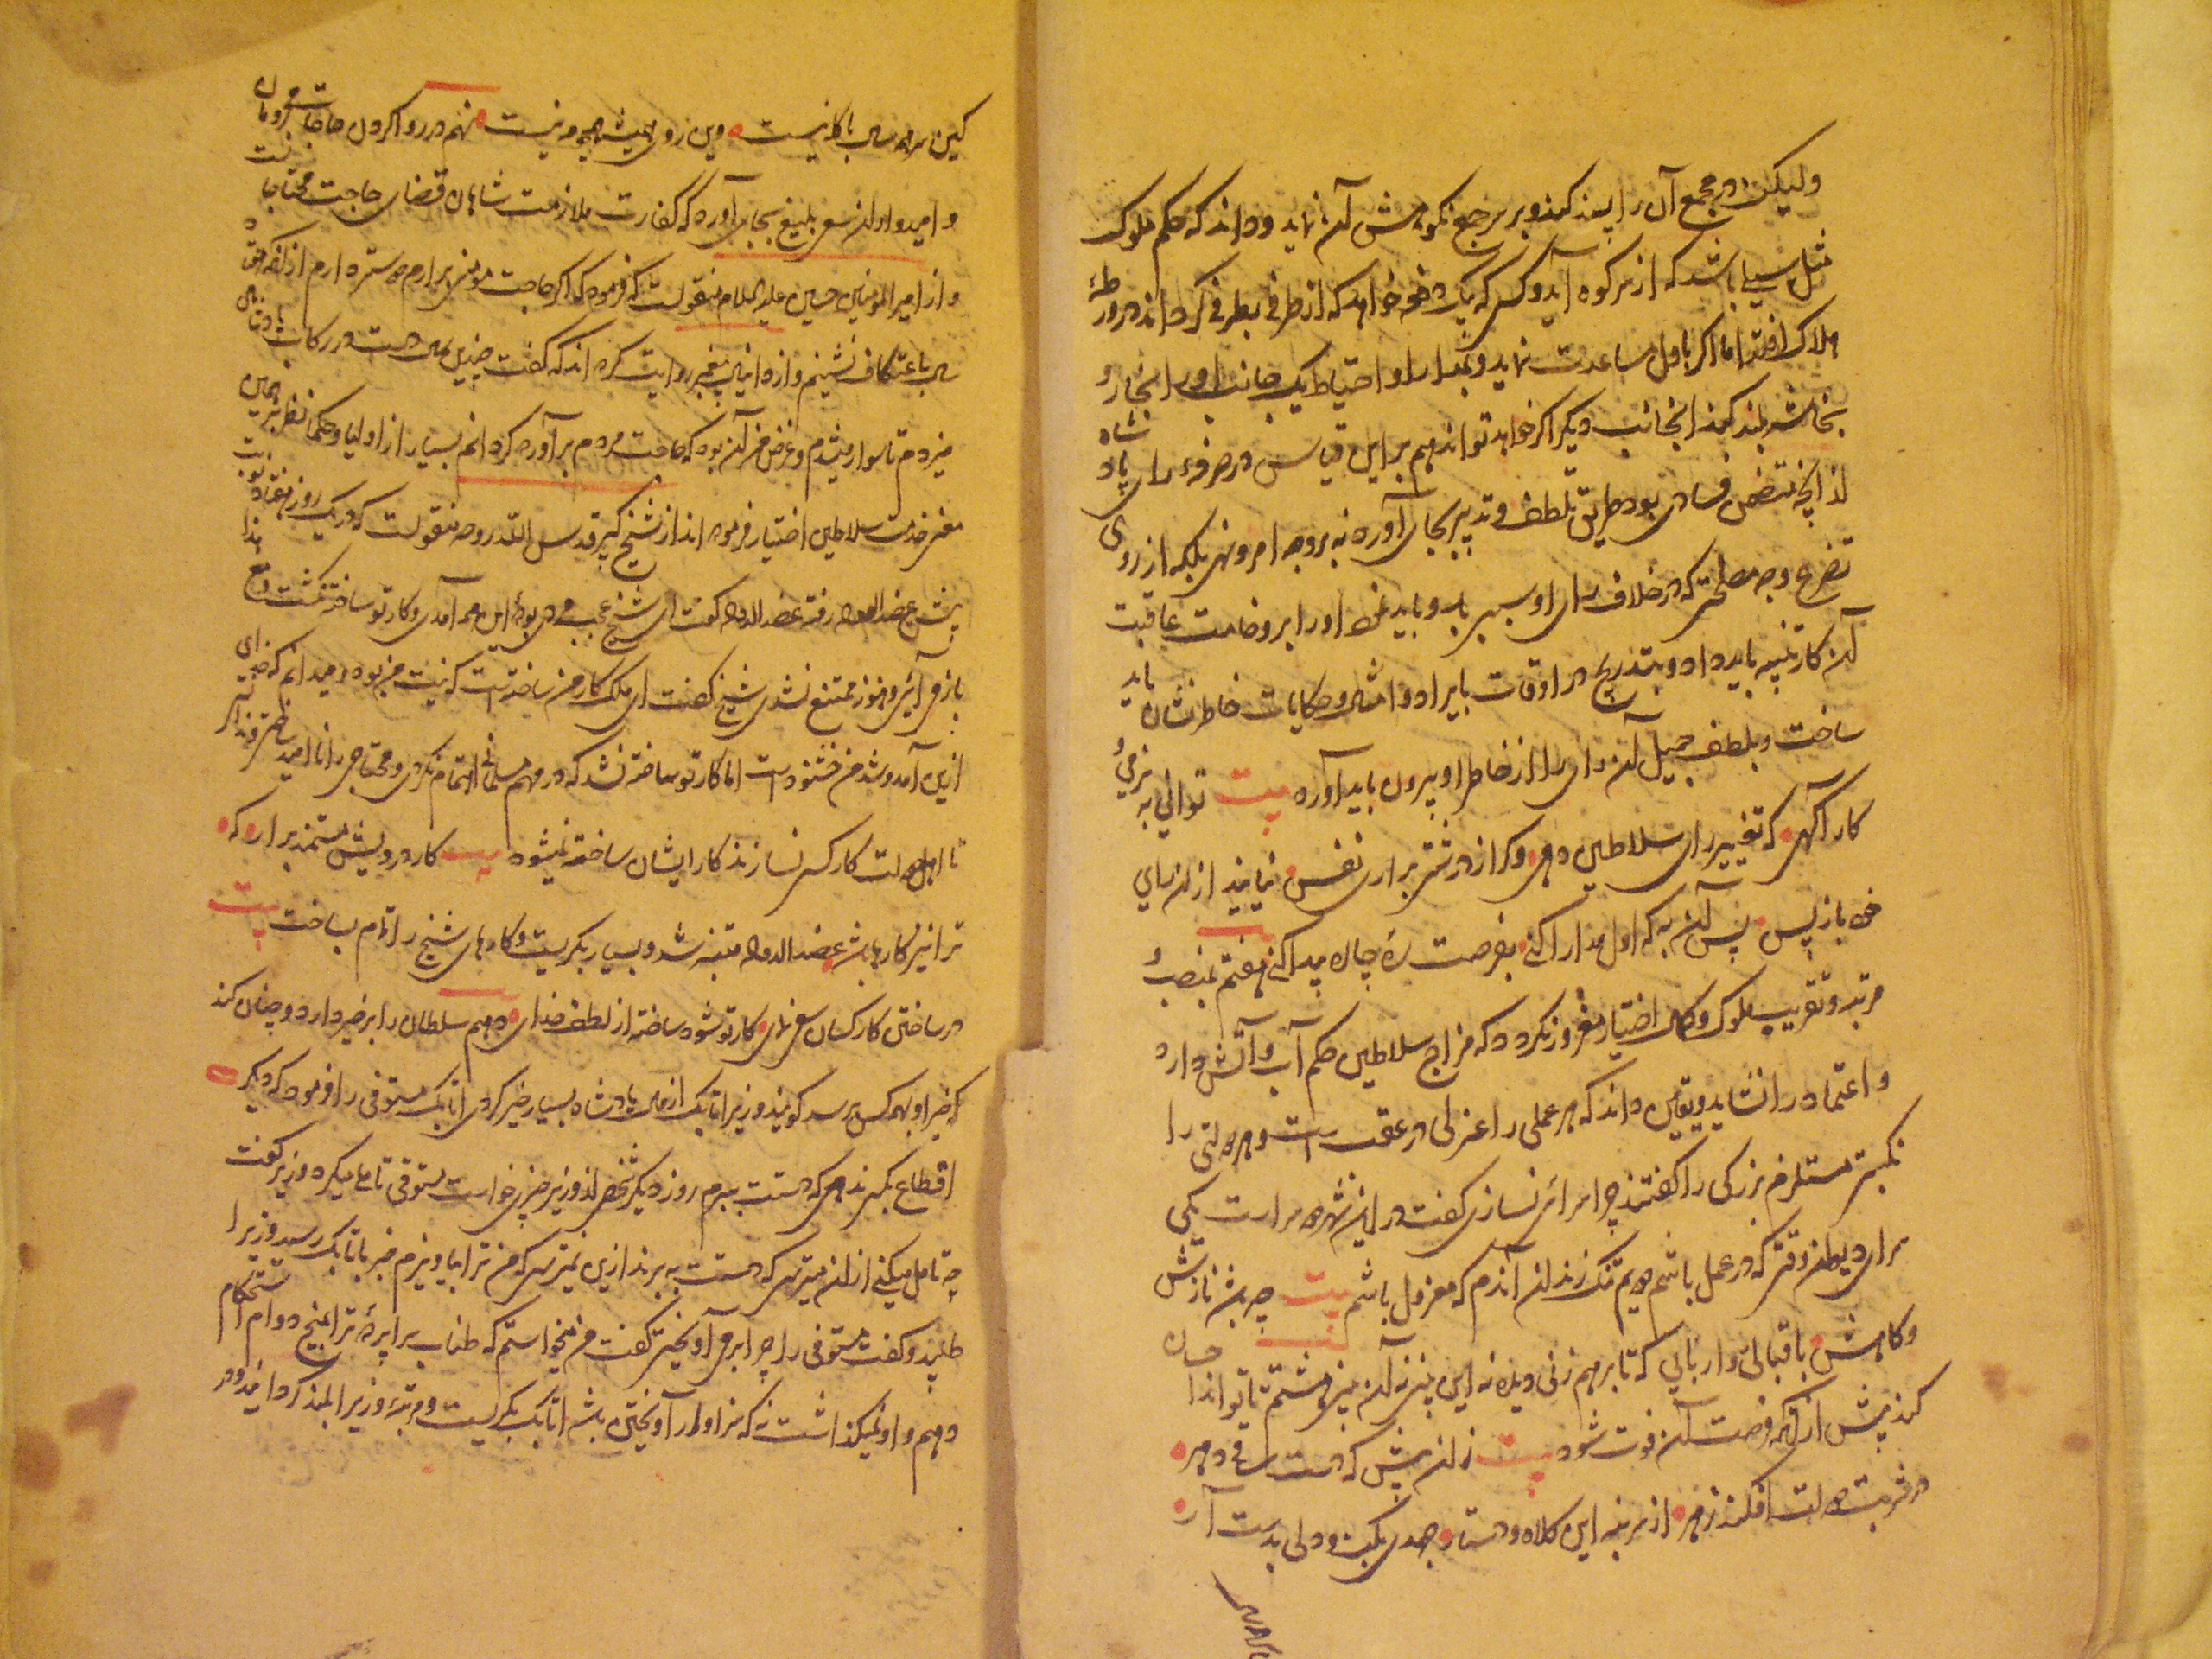 ولیکن در مجمع آن را پسند کند و بر مرجع نکوهش آن نماید و داند که حکم ملوک
مثل سیلی باشد که از سر کوه آید و کسی که یک دفعه خواهد که از طرفی بطرفی گرداند در ورطهٔ
هلاک افتد اما اگر باول مساعدت نماید و بمدارا و احتیاط یک جانب او را بخار و
بخاشه بلند کند بجانب دیگر اگر خواهد تواند هم براین قیاس در صرف رای پادشاه
از آنچه متضمن فسادی بود طریق تلطف و تدبیر بجای آورد نه بر وجه امر و نهی بلکه از روی
تضرع وجه مصلحتی که در خلاف رای او بسیر باید و باید نمود او را بر وخامت عاقبت
آن کار تنبیه باید داد و بتدریج در اوقات بایراد و امثال و حکایات خاطر نشان باید
ساخت و بلطف جمیل آن رای را از خاطر او بیرون باید آورد بیت توانی به نرمی و
کار آگهی که تغییر رای سلاطین دهی وگر از درشتی براری نفس نیایند ازان رای
خود باز پس پس آن به که اول مدارا کنی بفرصت رهٔ چاره پیدا کنی هفتم بمنصب و
مرتبه و تقریب ملوک و کمال اختیار مغرور نگردد که مزاج سلاطین حکم آب و آتش دارد
و اعتماد را نشاید و یقین داند که هر عملی را عزلی در عقب است و هر دولتی را
نکبتی مستلزم بزرگی را گفتند چرا سرائی نسازی گفت در این شهر دو سراست یکی
سرای دیوان وقتی که در عمل باشم دویم تنگ زندان آندم که معزول باشم بیت چه باشد نازش
و کاهش باقبالی و ادباری که تا برهم زنی دیده نه این بینی نه آن بینی هشتم تا تواند احسان
کند پیش از آنکه فرصت آن فوت شود بیت زان پیش که دست ساقی دهر
در شربت دولت افکند زهر از سر بنه این کلاه و دستار جهدی بکن و دلی بدست آر
کین سر همه سال با کله نیست وین روی همیشه همچو مه نیست نهم در روا کردن حاجات محرومان
و امیدواران سعی بلیغ بجای آورد که کفارت ملازمت شاهان قضای حاجت محتاجانست
و از امیر المؤمنین حسین علیه السلام منقولست که فرمود که اگر حاجت مؤمنی برارم دوستر دارم از آنکه هفتاد
سال باعتکاف نشینم و از دانیال پیغمبر روایت کرده اند که گفت چندین سال دست در رکاب پادشاهی
میزدم تا سوار میشدم و غرض من آن بود که حاجت مردم برآورده گردانم بسیار از اولیا و حکما نظر بر همین
معنی خدمت سلاطین اختیار فرموده اند از شیخ کبیر قدس الله روحه منقولست که در یک روز هفتاد نوبت
پیش عضد الدوله رفته عضد الدوله گفت ای شیخ عجب مردی بودهٔ این همه آمدی و کار تو ساخته نگشت
باز می آئی و هنوز ممتنع نشدی شیخ گفت ای ملک کار من ساخته است که نیت من بوده و میدانم که خدای
ازین آمد و شد من خشنودست اما کار تو ساخته نشد که در مهم مسلمانی اهتمام نکردی و محتاجی را ناامید ساختی
تا اهل دولت کار کسی نسازند کار ایشان ساخته نمیشود بیت کار درویش مستمند برار که
ترا نیز کارها باشد عضد الدوله متنبه شد و بسیار بگریست و کارهای شیخ را تمام بساخت بیت
در ساختن کار کسان سعی نمای کار تو شود ساخته از لطف خدای دهم سلطان را بر خیر دارد و چنان کند
که خیر او بهمه کس برسد گویند وزیر اتابک از مال پادشاه بسیار خیر کردی اتابک مستوفی را فرمود که دیگر
اقطاع بگیرند هر که دستت ببرم روز دیگر شخصی از وزیر چیزی خواست مستوفی تامل میکرد وزیر گفت
چه تامل میکنی ازان میترسی که دستت ببرند ازین نمیترسی که من ترا بیاویزم خبر باتابک رسید وزیر را
طلبید و گفت مستوفی را چرا بر می آویختی گفت من میخواستم که طناب سراپردهٔ ترا بمیخ دوام استحکام
دهم و او نمیگذاشت نه که سزاوار آویختن باشد اتابک بگریست و مرتبهٔ وزیر را بلند گردانید و در